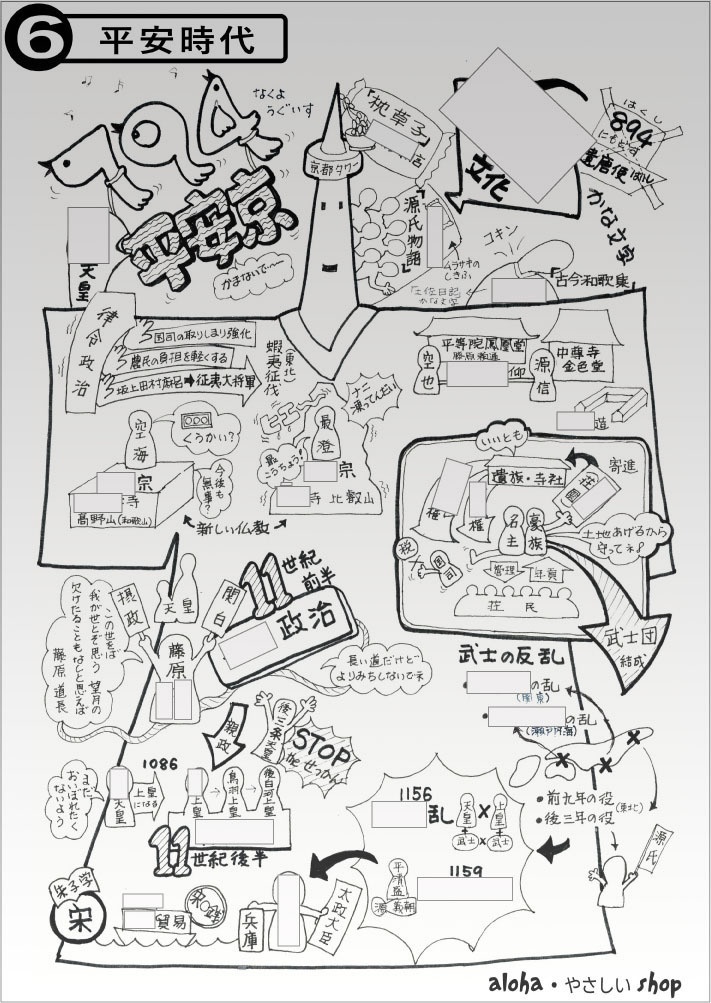 6 平安時代
794
なくよ
うぐいす
平安京
かまないで〜
天皇
京都タワー
『枕草子』
『源氏物語』
ムラサキの
しきぶ
『土佐日記』
かな文字
文化
はくし
894
にもどす
遣唐使
かな文字
コキン
『古今和歌集』
律令政治
国司の取りしまり強化
農民の負担を軽くする
坂上田村麻呂➡征夷大将軍
蝦夷征伐
(東北)
平等院鳳凰堂
藤原頼通
空也
源信
中尊寺
金色堂
造
空海
くうかい?
宗
寺
高野山(和歌山)
今後も
無事?
ヒエ〜
最澄
ナニ
凍ってんだい
最こうちょう!
宗
寺 比叡山
新しい仏教
いいとも
遺族・寺社
寄進
荘園
権
権
名主
豪族
税
国司
管理
年貢
荘民
土地あげるから
守ってネ!
武士団
結成
11世紀
前半
政治
摂政
天皇
関白
藤原
この世をば
我が世とぞ思う 望月の
欠けたることもなしと思えば
藤原 道長
長い道だけど
よりみちしないでネ
親政
後三条天皇
STOP
the せっかん
武士の反乱
の乱
(関東)
の乱
(瀬戸内海)
・前九年の役
・後三年の役
(東北)
源氏
まだ
おいぼれたく
ないよう
1086
天皇
上皇
になる
上皇
鳥羽上皇
後白河上皇
11世紀後半
1156
乱
天皇
×
上皇
武士
×
武士
1159
平清盛
源義朝
朱子学
宋
貿易
宋銭
兵庫
太政大臣
aloha・やさしい shop